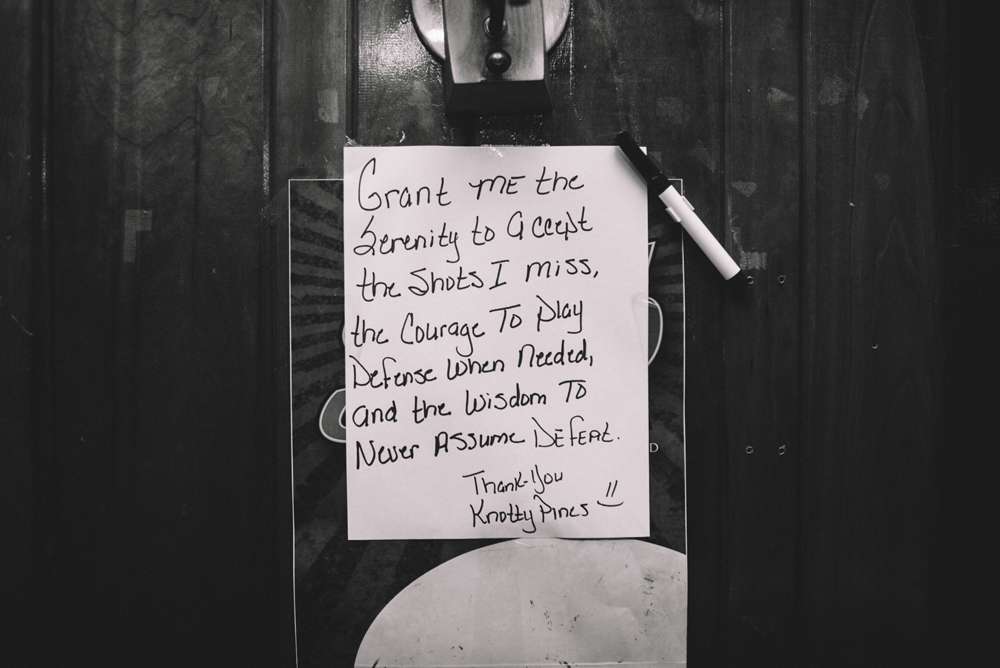 Grant ME the
Serenity to Accept
the Shots I miss,
the Courage To play
Defense When Needed,
and the Wisdom To
Never Assume DEFEAt.
Thank-You
Knotty Pines =)
D